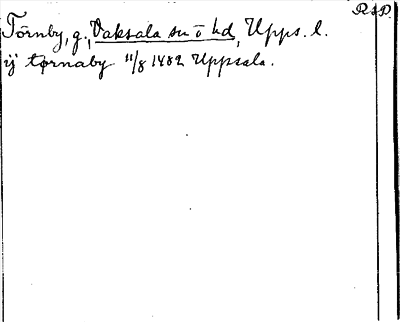 RAP.
Törnby, g., Vaksala sn o hd, Upps. l.
ij tørnaby 11/8 1482 Uppsala.